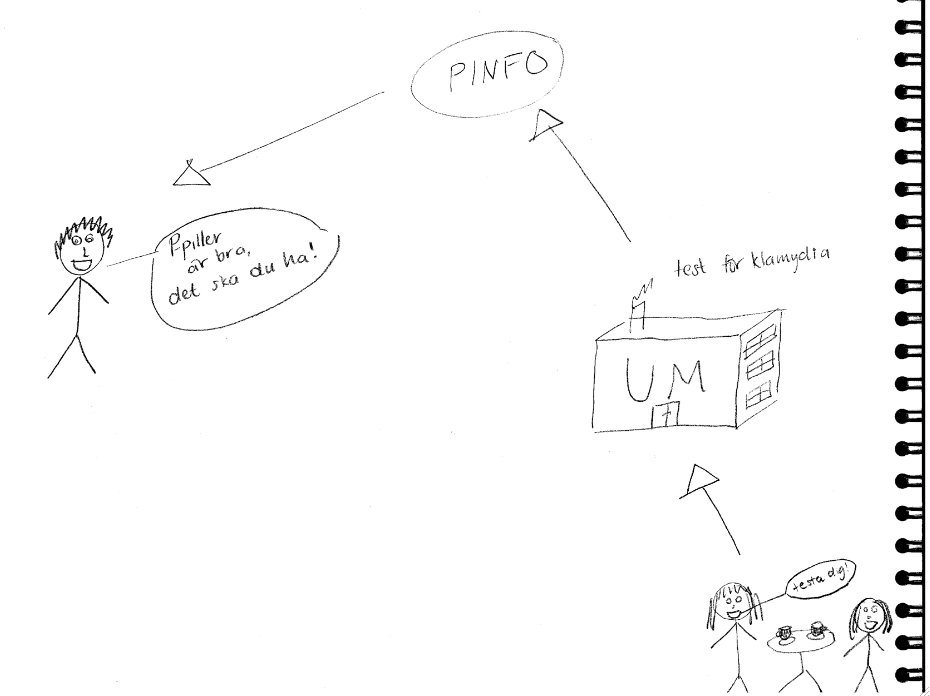 PINFO
P-piller
är bra,
det ska du ha!
test för klamydia
UM
testa dig!